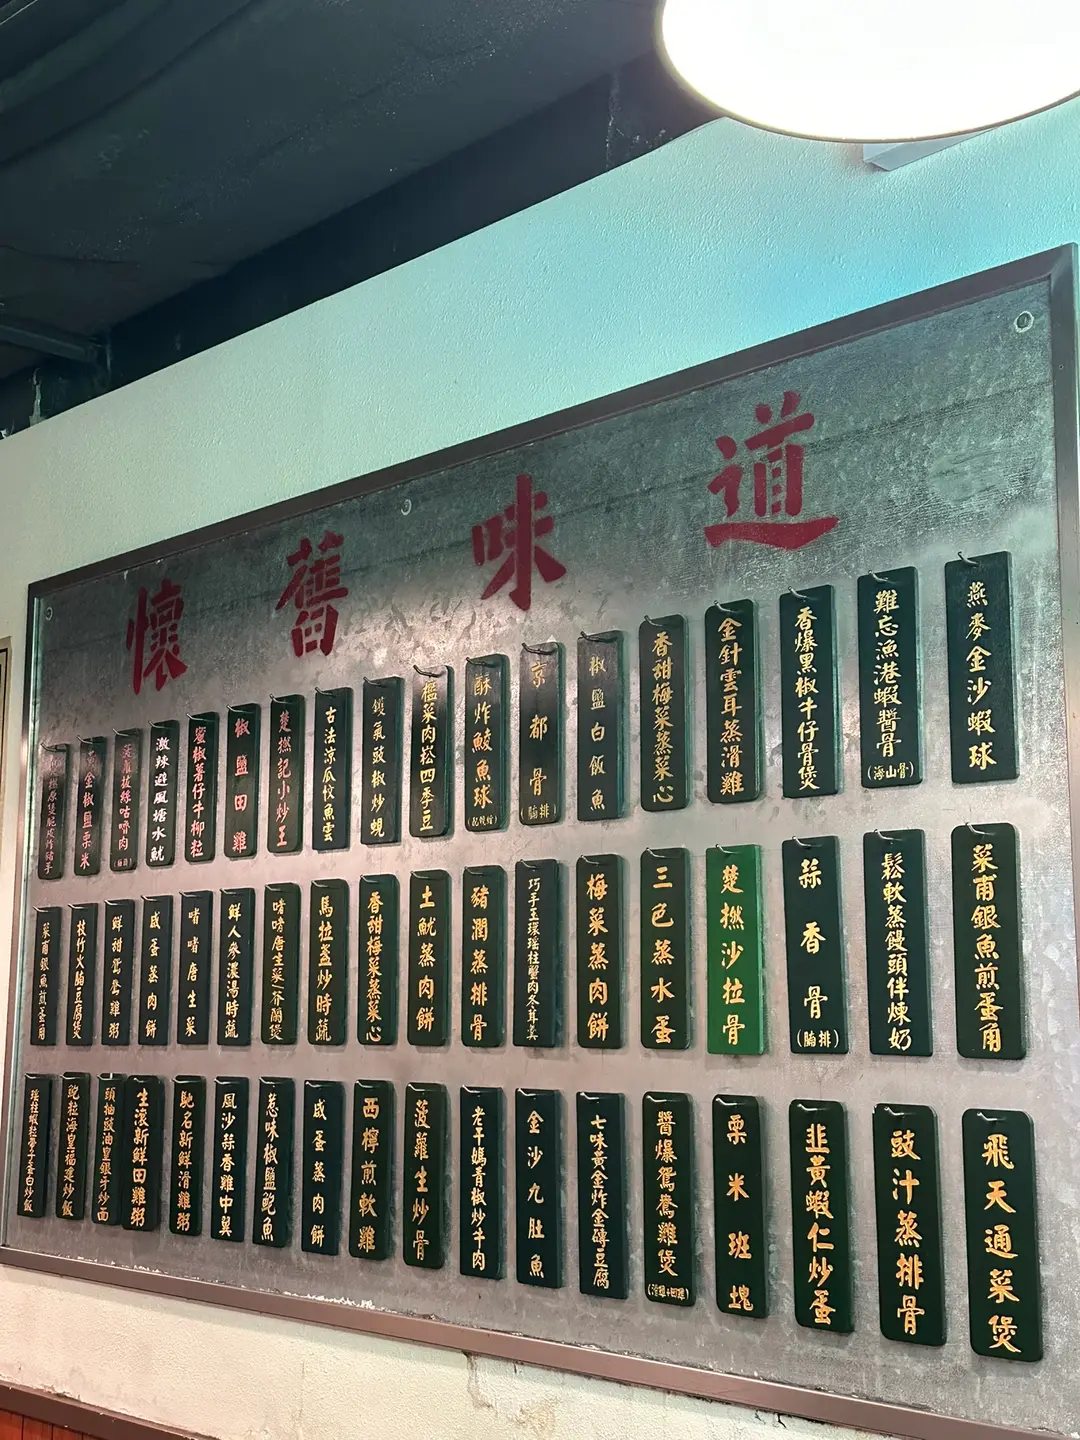 懷舊味道
燕麥金沙蝦球
難忘漁港蝦醬骨
(海山骨)
香爆黑椒牛仔骨煲
金針雲耳蒸滑雞
香甜梅菜蒸菜心
椒鹽白飯魚
京都骨
(腩排)
酥炸鯪魚球
欖菜肉崧四季豆
鑊氣豉椒炒蜆
古法涼瓜炆魚雲
楚撚記小炒王
椒鹽田雞
蜜椒薯仔牛柳粒
激辣避風塘水魷
黃金椒鹽粟米
菜甫銀魚煎蛋角
鬆軟蒸饅頭伴煉奶
蒜香骨
(腩排)
楚撚沙拉骨
三色蒸水蛋
梅菜蒸肉餅
豬潤蒸排骨
土魷蒸肉餅
香甜梅菜蒸菜心
馬拉盞炒時蔬
啫啫唐生菜/芥蘭煲
鮮人參濃湯時蔬
啫啫唐生菜
咸蛋蒸肉餅
枝竹火腩豆腐煲
菜甫銀魚煎蛋角
飛天通菜煲
豉汁蒸排骨
韭黃蝦仁炒蛋
粟米班塊
醬爆鴛鴦雞煲
七味黃金炸金磚豆腐
金沙九肚魚
老干媽青椒炒牛肉
菠蘿生炒骨
西檸煎軟雞
咸蛋蒸肉餅
惹味椒鹽鮑魚
風沙蒜香雞中翼
馳名新鮮滑雞粥
生滾新鮮田雞粥
頭抽豉油皇銀牙炒面
鮑粒海皇福建炒飯